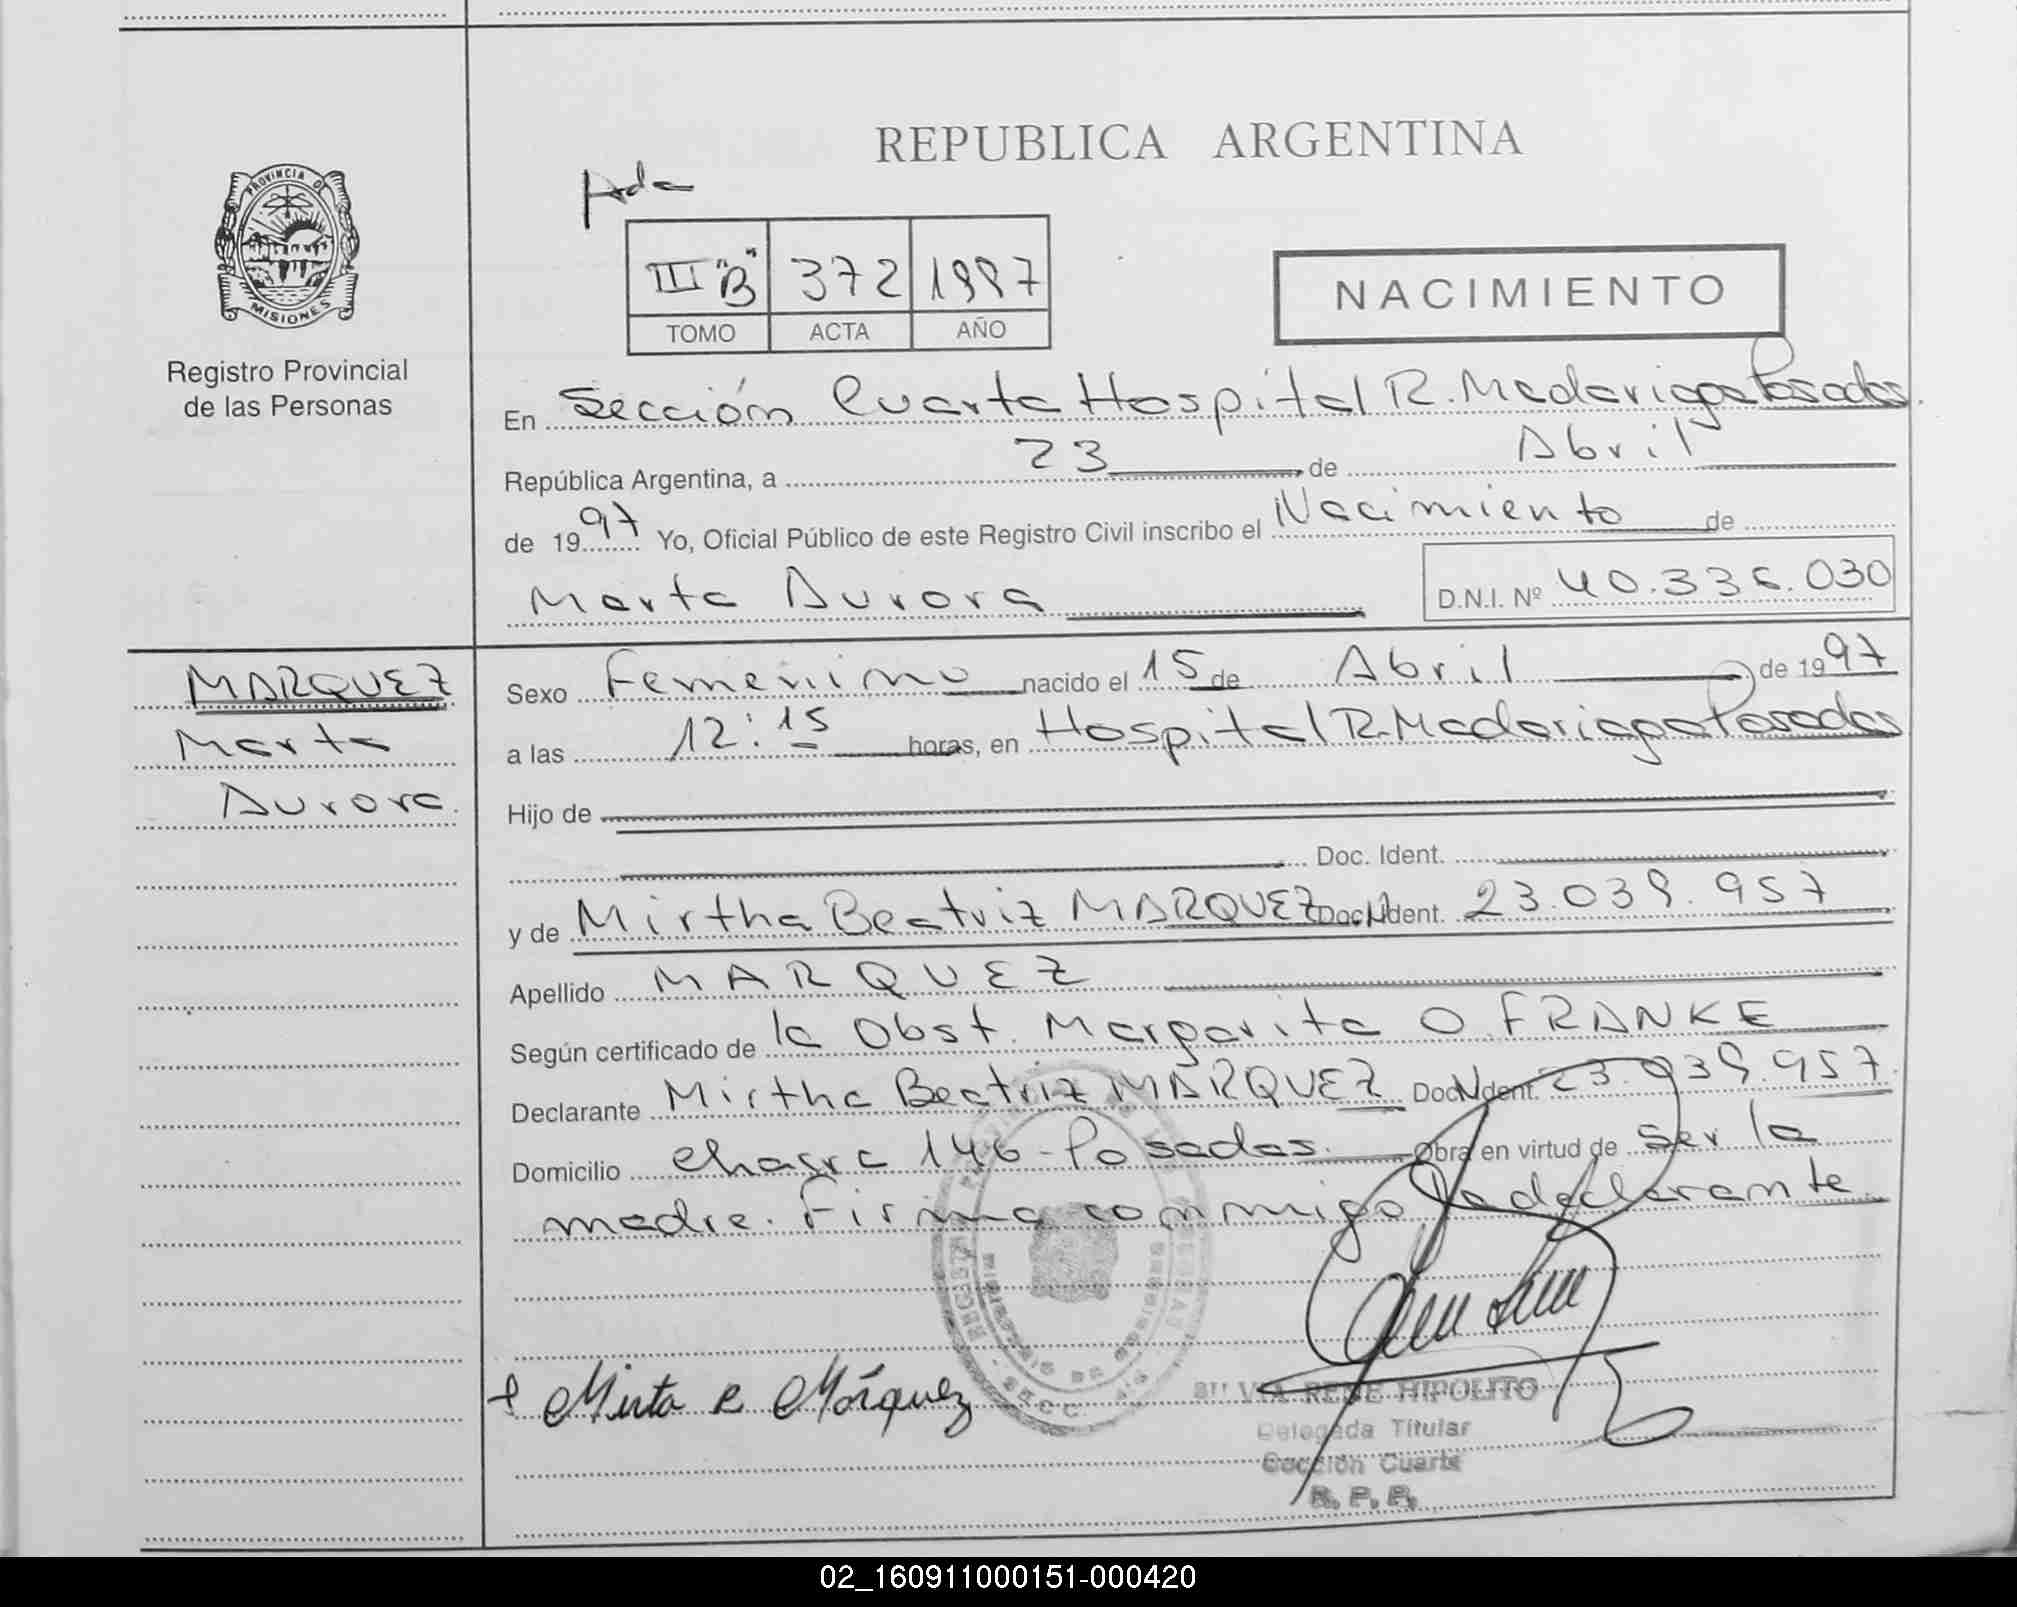 REPUBLICA ARGENTINA
PROVINCIA DE
MISIONES
Registro Provincial
de las Personas
III "B" 372 1997
TOMO ACTA AÑO
NACIMIENTO
En Sección Cuarta Hospital R. Madariaga Posadas.
República Argentina, a 23 de Abril
de 1997 Yo, Oficial Público de este Registro Civil inscribo el Nacimiento de
Marta Aurora D.N.I. Nº 40.336.030
MARQUEZ
Marta
Aurora.
Sexo Femenino nacido el 15 de Abril de 1997
a las 12:15 horas, en Hospital R. Madariaga Posadas
Hijo de
Doc. Ident.
y de Mirtha Beatriz MARQUEZ Doc. Ident. 23.039.957
Apellido MARQUEZ
Según certificado de la Obst. Margarita O. FRANKE
Declarante Mirtha Beatriz MARQUEZ Doc. Ident. 23.039.957.
Domicilio Chacra 146-Posadas. Obra en virtud de Ser la
madre. Firma conmigo la declarante
Mirta B Márquez
SILVIA RENE HIPOLITO
Delegada Titular
Sección Cuarta
R. P. P.
02_160911000151-000420